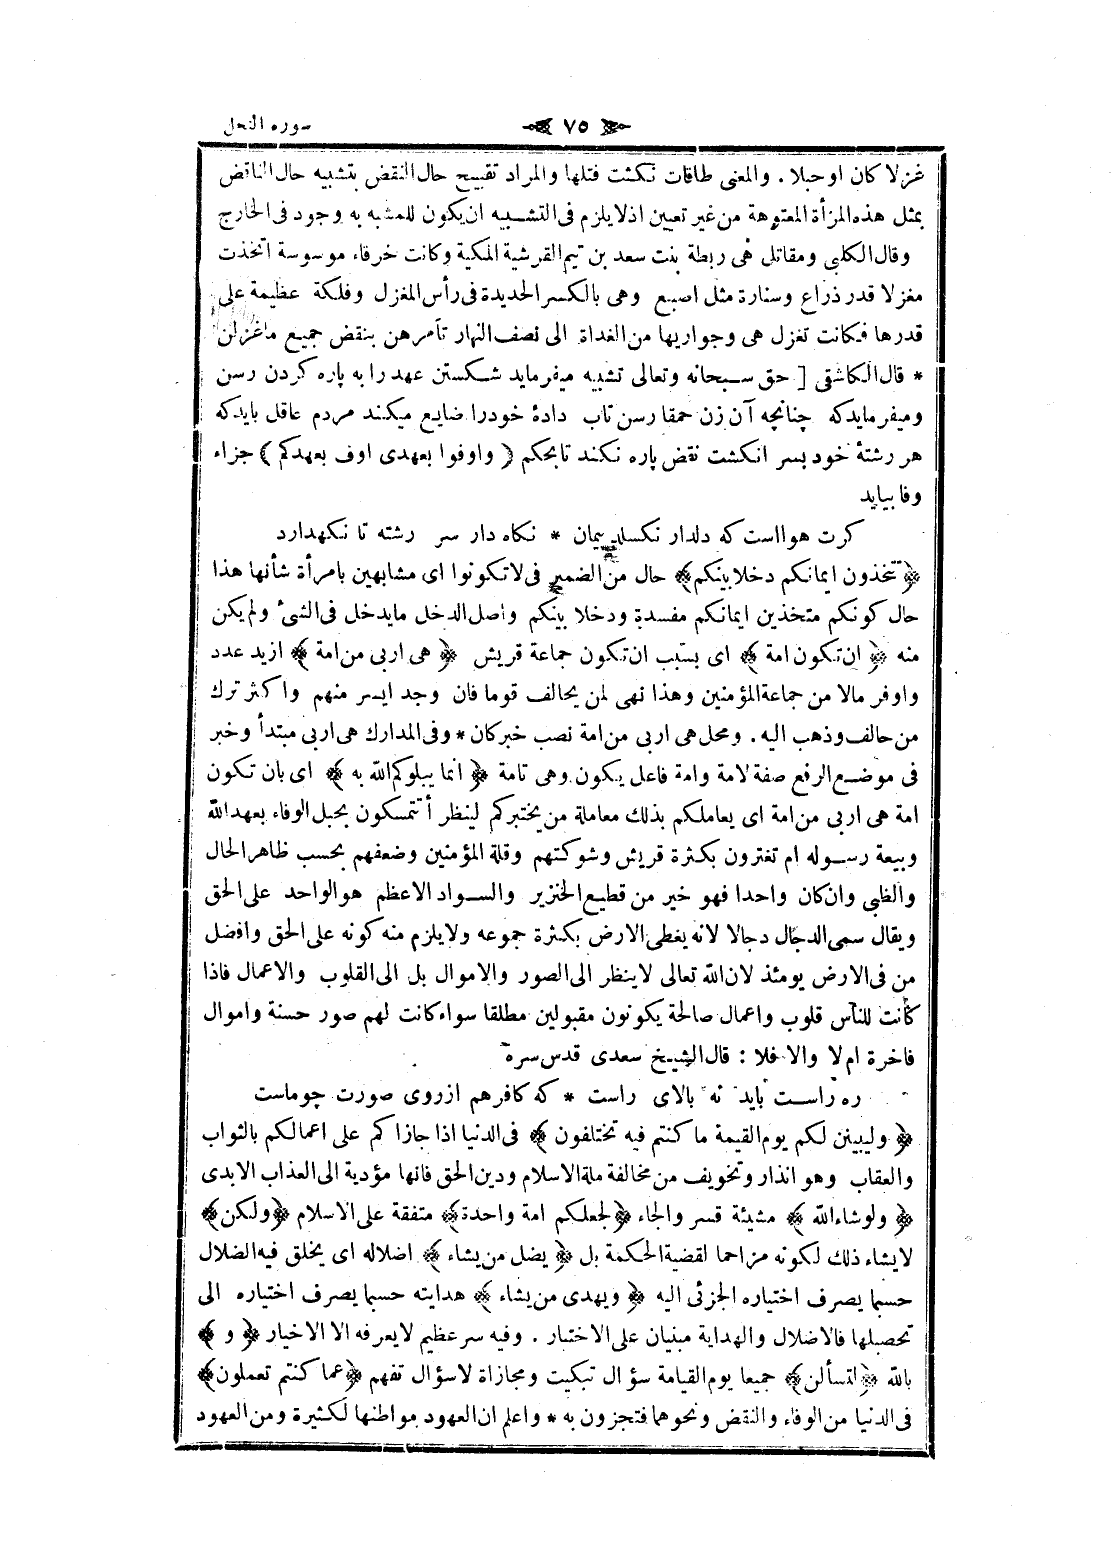 سورة النحل
٧٥
غزلا كان او حبلا . والمعنى طاقات نكثت فتلها والمراد تقبيح حال النقض بتشبيه حال الناقض
بمثل هذه المرأة المعتوهة من غير تعيين اذ لا يلزم فى التشبيه ان يكون للمشبه به وجود فى الخارج
وقال الكلبى ومقاتل هى ربطة بنت سعد بن تيم القرشية المكية وكانت خرقاء موسوسة اتخذت
مغزلا قدر ذراع وسنارة مثل اصبع وهى بالكسر الحديدة فى رأس المغزل وفلكة عظيمة على
قدرها فكانت تغزل هى وجواريها من الغداة الى نصف النهار تأمرهن بنقض جميع ما غزلن
* قال الكاشفى [ حق سبحانه وتعالى تشبيه ميفرمايد شكستن عهد را به پاره كردن رسن
وميفرمايدكه چنانچه آن زن حمقا رسن تاب دادهٔ خودرا ضايع ميكند مردم عاقل بايدكه
هر رشتهٔ خود بسر انكشت نقض پاره نكند تا بحكم ( واوفوا بعهدى اوف بعهدكم ) جزاء
وفا بيايد
كرت هوا است كه دلدار نكسلد پيمان * نكاه دار سر رشته تا نكهدارد
﴿ تتخذون ايمانكم دخلا بينكم ﴾ حال من الضمير فى لا تكونوا اى مشابهين بامرأة شأنها هذا
حال كونكم متخذين ايمانكم مفسدة ودخلا بينكم واصل الدخل مايدخل فى الشئ ولم يكن
منه ﴿ ان تكون امة ﴾ اى بسبب ان تكون جماعة قريش ﴿ هى اربى من امة ﴾ ازيد عدد
واوفر مالا من جماعة المؤمنين وهذا نهى لمن يحالف قوما فان وجد ايسر منهم واكثر ترك
من حالف وذهب اليه . ومحل هى اربى من امة نصب خبركان * وفى المدارك هى اربى مبتدأ وخبر
فى موضع الرفع صفة لامة وامة فاعل يكون وهى تامة ﴿ انما يبلوكم الله به ﴾ اى بان تكون
امة هى اربى من امة اى يعاملكم بذلك معاملة من يختبركم لينظر أتتمسكون بحبل الوفاء بعهد الله
وبيعة رسوله ام تغترون بكثرة قريش وشوكتهم وقلة المؤمنين وضعفهم بحسب ظاهر الحال
والظبى وان كان واحدا فهو خير من قطيع الخنزير والسواد الاعظم هو الواحد على الحق
ويقال سمى الدجال دجالا لانه يغطى الارض بكثرة جموعه ولا يلزم منه كونه على الحق وافضل
من فى الارض يومئذ لان الله تعالى لا ينظر الى الصور والاموال بل الى القلوب والاعمال فاذا
كانت للناس قلوب واعمال صالحة يكونون مقبولين مطلقا سواء كانت لهم صور حسنة واموال
فاخرة ام لا والا فلا : قال الشيخ سعدى قدس سره
ره راست بايد نه بالاى راست * كه كافر هم از روى صورت چو ماست
﴿ وليبينن لكم يوم القيمة ما كنتم فيه تختلفون ﴾ فى الدنيا اذا جازاكم على اعمالكم بالثواب
والعقاب وهو انذار وتخويف من مخالفة ملة الاسلام ودين الحق فانها مؤدية الى العذاب الابدى
﴿ ولوشاء الله ﴾ مشيئة قسر والجاء ﴿ لجعلكم امة واحدة ﴾ متفقة على الاسلام ﴿ ولكن ﴾
لا يشاء ذلك لكونه مزاحما لقضية الحكمة بل ﴿ يضل من يشاء ﴾ اضلاله اى يخلق فيه الضلال
حسبما يصرف اختياره الجزئى اليه ﴿ ويهدى من يشاء ﴾ هدايته حسبما يصرف اختياره الى
تحصيلها فالاضلال والهداية مبنيان على الاختيار . وفيه سر عظيم لا يعرفه الا الاخيار ﴿ و ﴾
بالله ﴿ لتسألن ﴾ جميعا يوم القيامة سؤال تبكيت ومجازاة لاسؤال تفهم ﴿ عما كنتم تعملون ﴾
فى الدنيا من الوفاء والنقض ونحوهما فتجزون به * واعلم ان العهود مواطنها لكثيرة ومن العهود